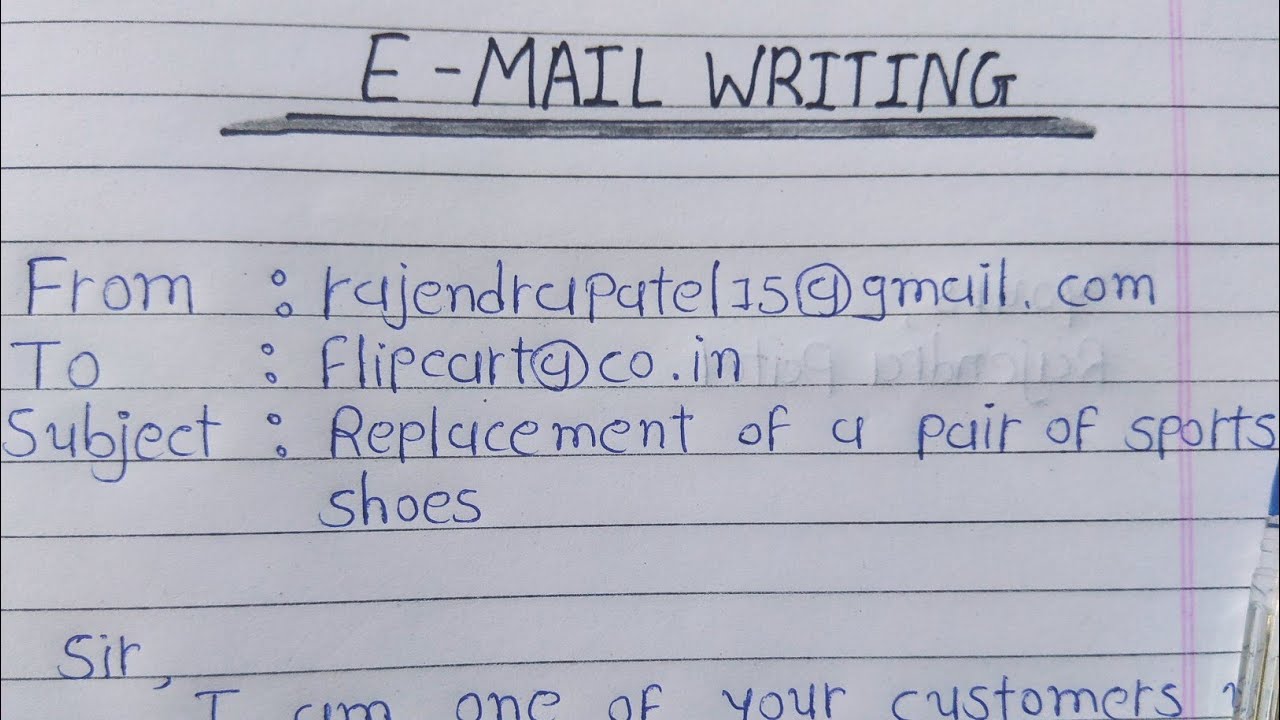 E-MAIL WRITING
From : rajendrapatel15@gmail.com
To : Flipcart@co.in
Subject : Replacement of a pair of sports
shoes
Sir,
I am one of your customers